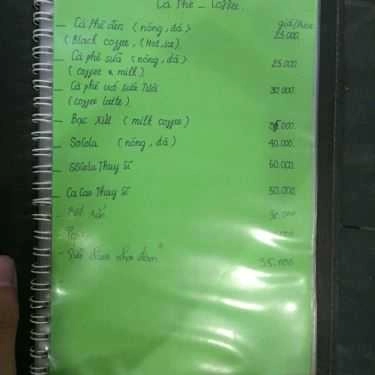 Cà Phê _ Coffee.
giá/Price
_ Cà Phê đen (nóng, đá) 25.000
(Black coffee, (Hot, ice)
_ Cà phê sữa (nóng, đá) 25.000
(coffee & milk)
_ Cà phê và sữa tươi 30 000
(coffee latte)
_ Bạc xỉu (milk coffee) 35.000.
_ Sôcôla (nóng, đá) 40.000.
_ Sôcôla Thụy Sĩ 60.000.
_ Ca Cao Thụy Sĩ 50.000.
_ 30 000
_
_ Sữa 35.000